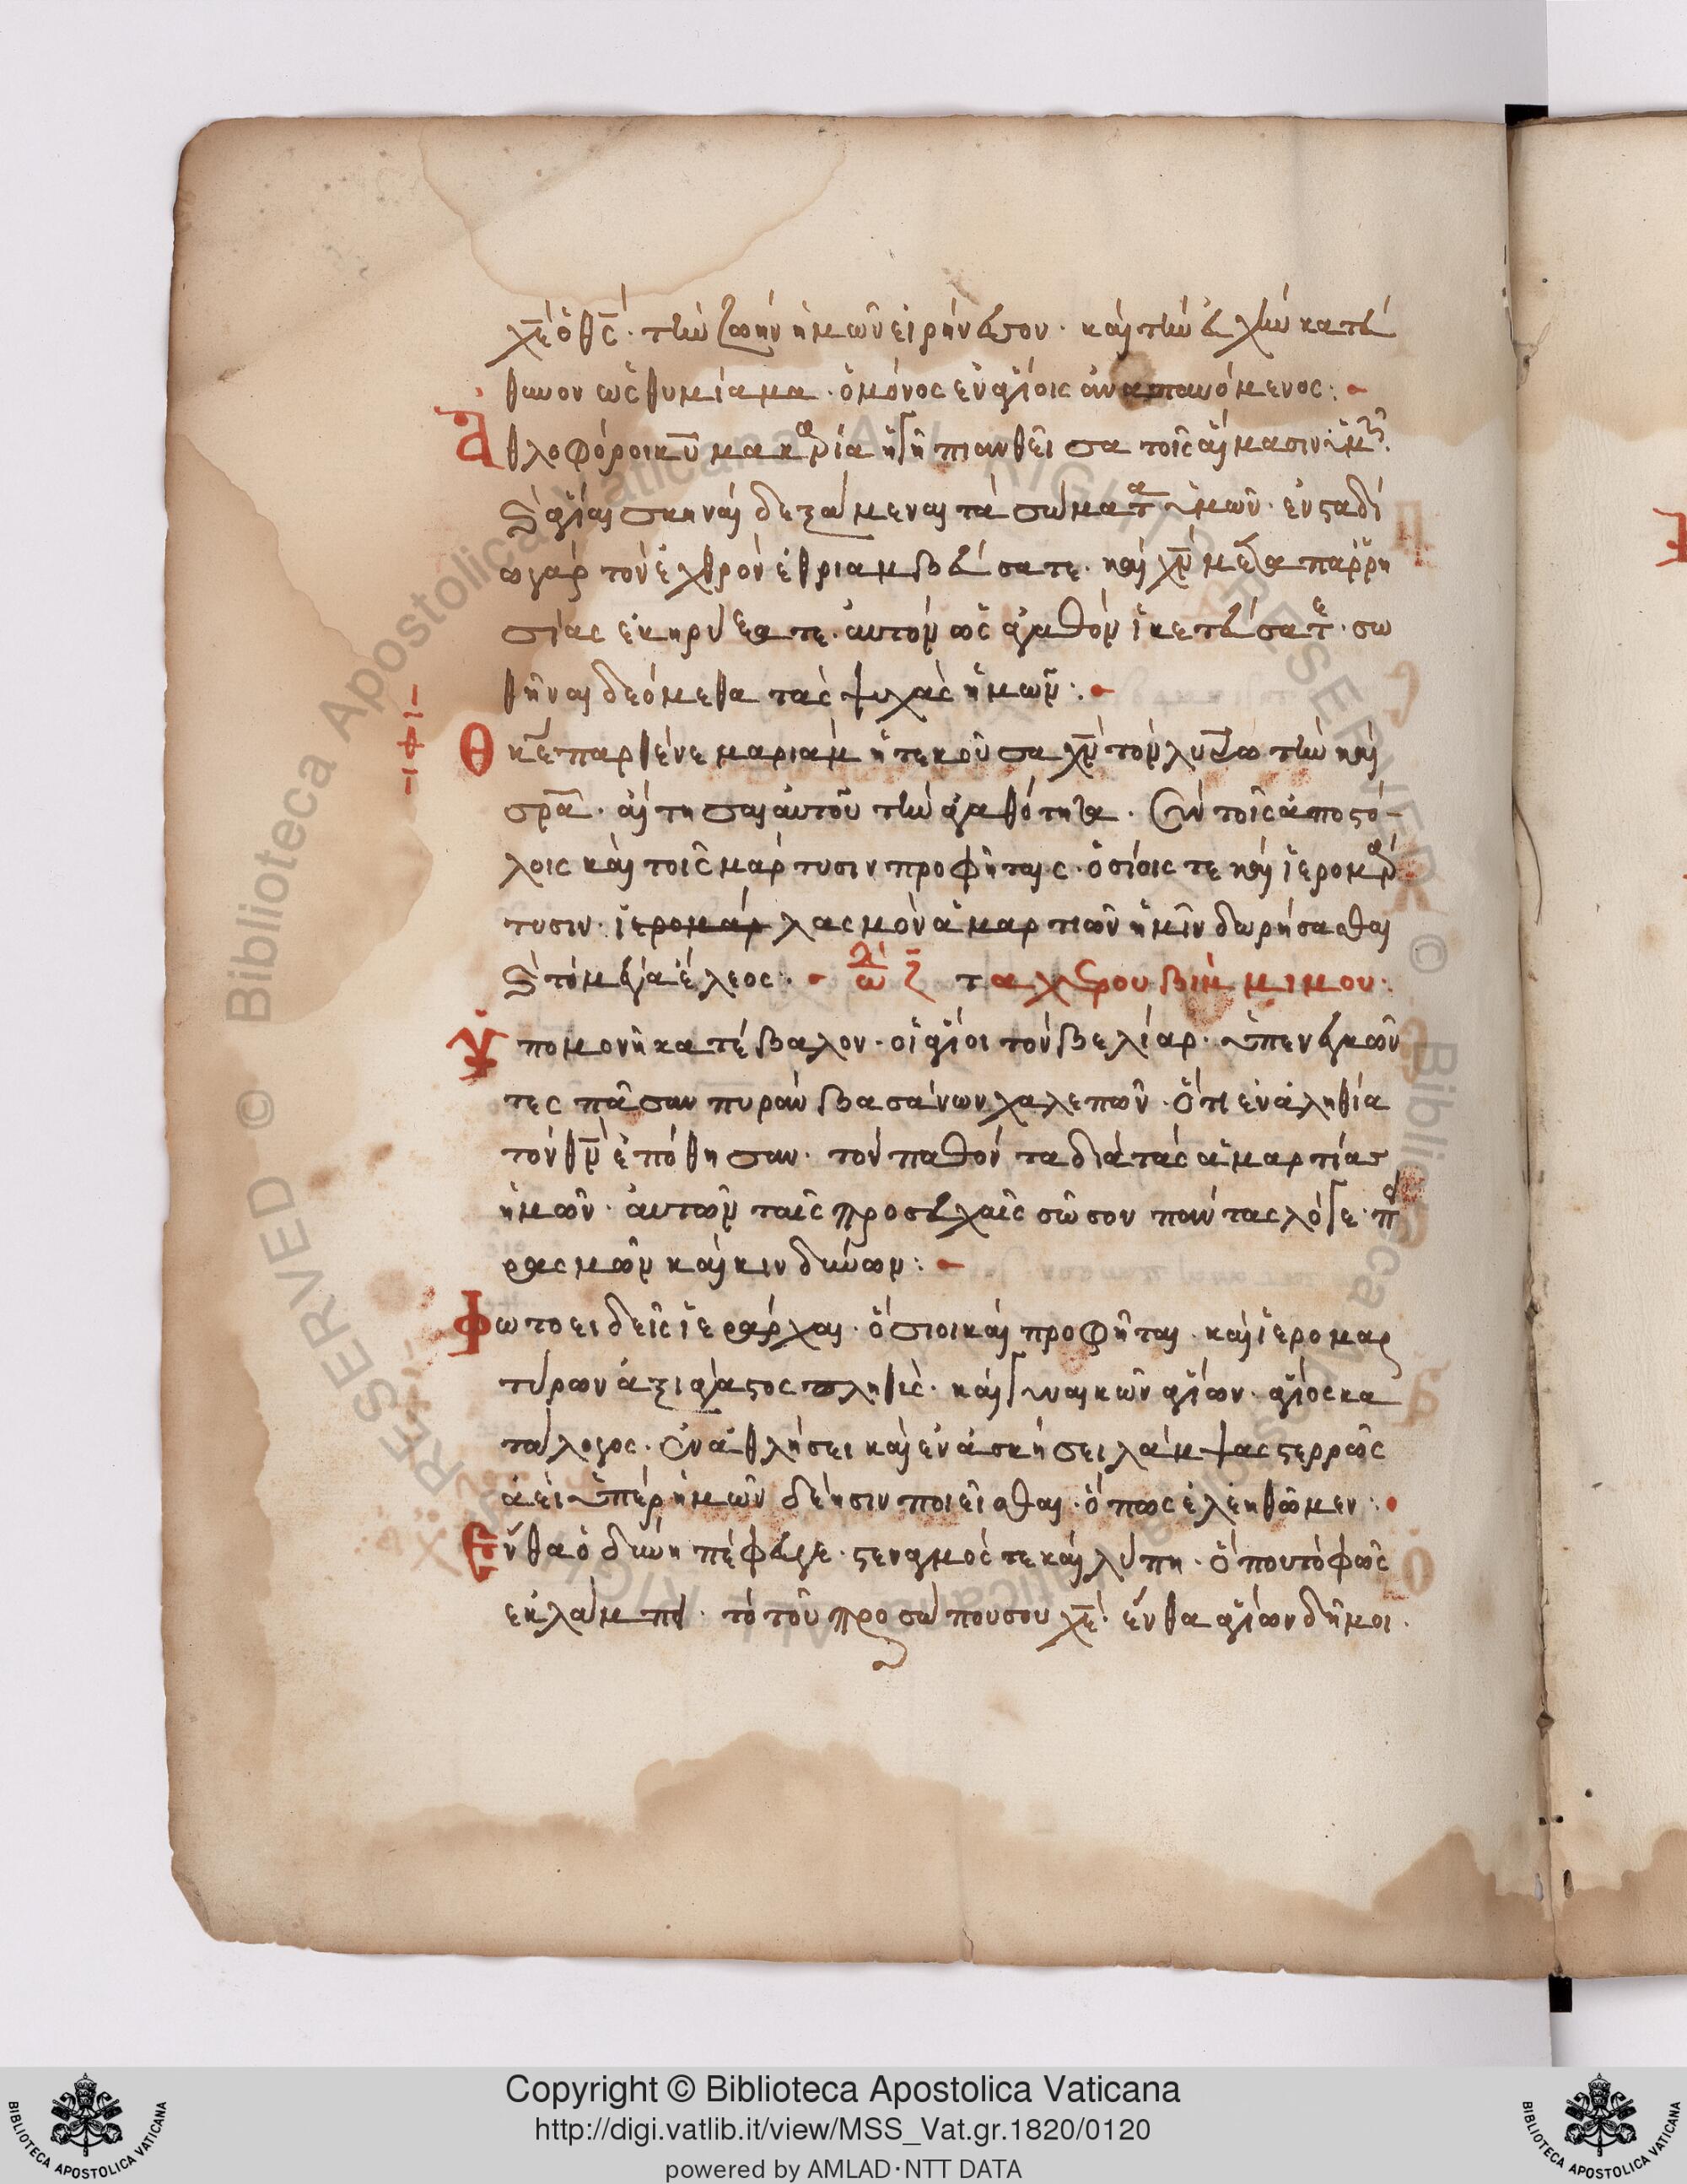 χε ὁ θς· τὴν ζωὴν ἡμῶν εἰρήνευσον· καὶ τὴν εὐχὴν κατεύ
θυνον ὡς θυμίαμα· ὁ μόνος ἐν ἁγίοις ἀναπαυόμενος:
Ἀθλοφόροι κυ μακαρία ἡ γῆ πιανθεῖσα τοῖς αἵμασιν ὑμῶν
καὶ ἅγιαι σκηναὶ δεξάμεναι τὰ σώματα ὑμῶν· ἐν σταδί
ω γὰρ τὸν ἐχθρὸν ἐθριαμβεύσατε· καὶ χν μετὰ παρρη
σίας ἐκηρύξατε· αὐτὸν ὡς ἀγαθὸν ἱκετεύσατε· σω
θῆναι δεόμεθα τὰς ψυχὰς ἡμῶν:
Θκε παρθένε μαριὰμ ἡ τεκοῦσα χν τὸν λυτρωτὴν καὶ
σρα· αἴτησαι αὐτοῦ τὴν ἀγαθότητα· σὺν τοῖς ἀποστό-
λοις καὶ τοῖς μάρτυσιν προφήταις· ὁσίοις τε καὶ ἱερομάρ
τυσιν· ἱερομάρ λασμὸν ἁμαρτιῶν ἡμῖν δωρήσασθαι
καὶ τὸ μέγα ἔλεος: τα χερουβὶμ μιμου·
Ὑπομονῇ κατέβαλον· οἱ ἅγιοι τὸν βελίαρ· ὑπενεγκῶν
τες πᾶσαν πυρὰν βασάνων χαλεπῶν· ὅτι ἐν ἀληθία
τὸν θν ἐπόθησαν· τὸν παθόντα διὰ τὰς ἁμαρτίας
ἡμῶν· αὐτῶν ταῖς προσευχαῖς σῶσον πάντας λόγε· πει
ρασμῶν καὶ κινδύνων:
Φωτοειδεῖς ἱεράρχαι· ὅσιοι καὶ προφῆται· καὶ ἱερομαρ
τύρων ἀξιάγαστος πληθὺς· καὶ γυναικῶν ἁγίων· ἅγιος κα
τάλογος· ἐν ἀθλήσει καὶ ἐν ἀσκήσει λάμψας στερρῶς
ἀεὶ ὑπὲρ ἡμῶν δέησιν ποιεῖσθαι· ὅπως ἐλεηθῶμεν:
Ἔνθα ὀδύνη πέφευγε· στεναγμός τε καὶ λύπη· ὅπου τὸ φῶς
ἐκλάμπει· τὸ τοῦ προσώπου σου χε· ἔνθα ἁγίων δῆμοι·
Copyright © Biblioteca Apostolica Vaticana
http://digi.vatlib.it/view/MSS_Vat.gr.1820/0120
powered by AMLAD·NTT DATA
BIBLIOTECA APOSTOLICA VATICANA
BIBLIOTECA APOSTOLICA VATICANA